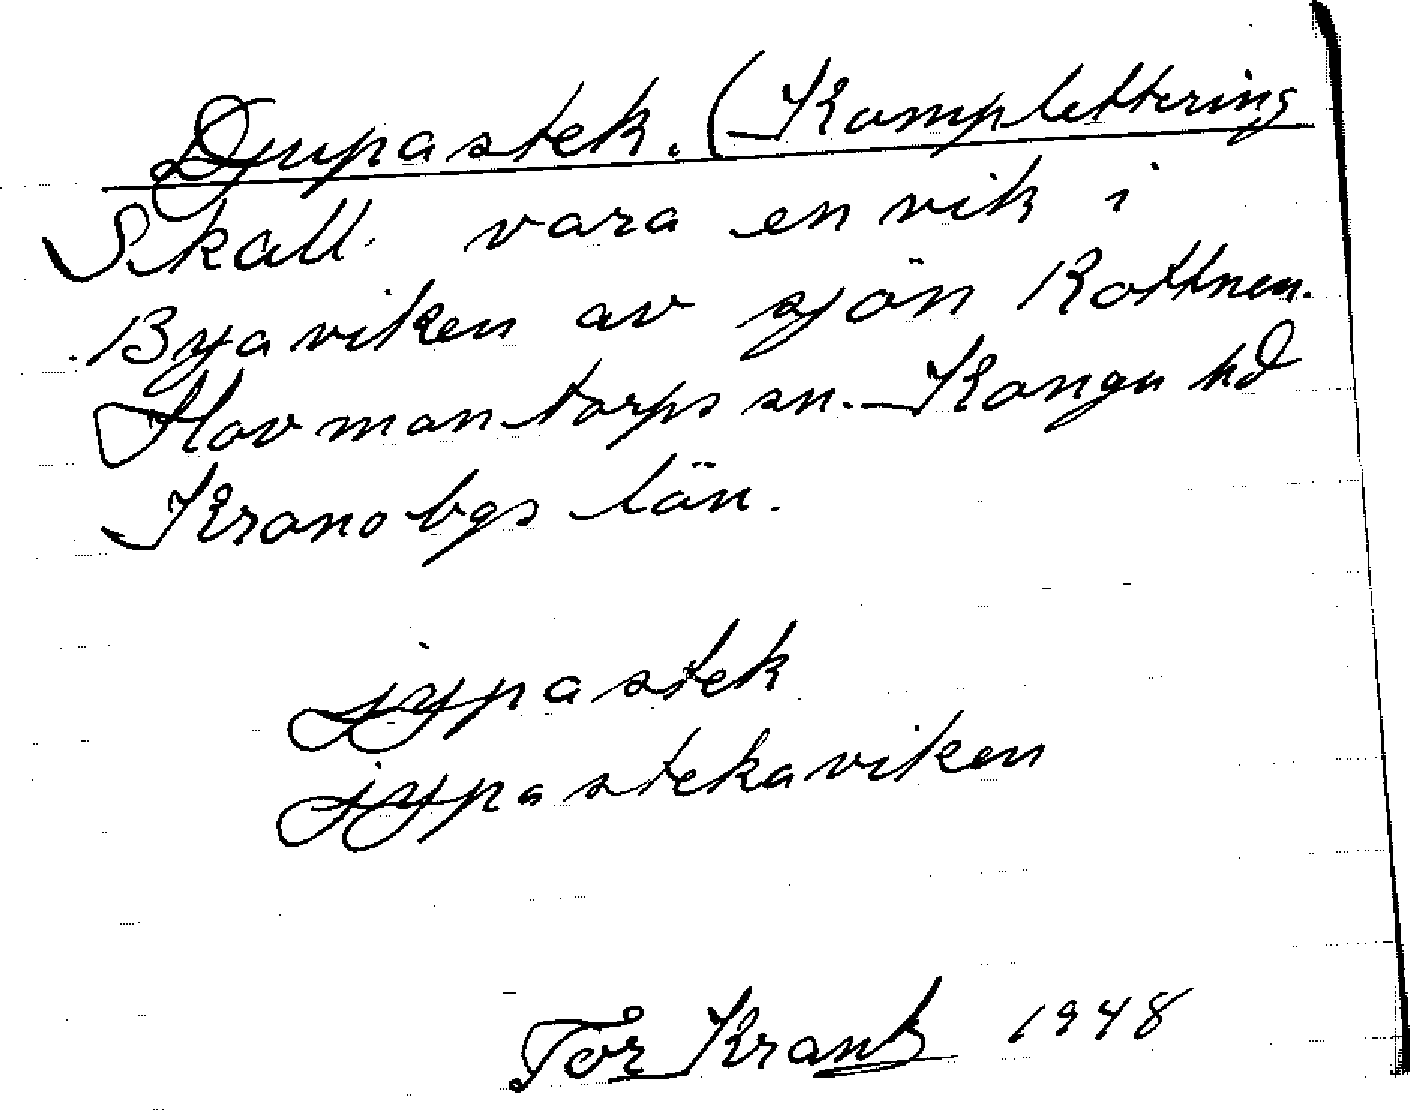 Djupastek. (Komplettering
Skall vara en vik i
Byaviken av sjön Rottnen.
Hovmantorps sn. Konga hd
Kronobgs län.
jypastek
jypastekaviken
Tor Krank 1948